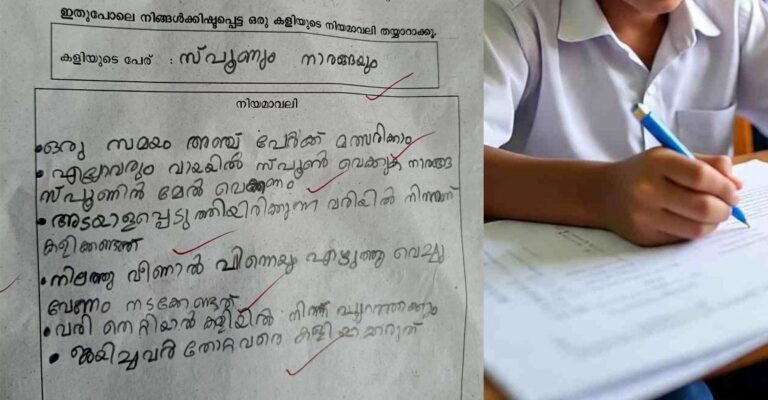 ഇതുപോലെ നിങ്ങൾക്കിഷ്ടപ്പെട്ട ഒരു കളിയുടെ നിയമാവലി തയ്യാറാക്കൂ.
കളിയുടെ പേര് : സ്പൂണും നാരങ്ങയും
നിയമാവലി
• ഒരു സമയം അഞ്ച് പേർക്ക് മത്സരിക്കാം
• എല്ലാവരും വായയിൽ സ്പൂൺ വെക്കുക നാരങ്ങ
സ്പൂണിൻ മേൽ വെക്കണം
• അടയാളപ്പെടുത്തിയിരിക്കുന്ന വരിയിൽ നിന്നാണ്
കളിക്കേണ്ടത്
• നിലത്തു വീണാൽ പിന്നെയും എടുത്തു വെച്ചു
വേണം നടക്കേണ്ടത്
• വരി തെറ്റിയാൽ കളിയിൽ നിന്ന് പുറത്താക്കും
• ജയിച്ചവർ തോറ്റവരെ കളിയാക്കരുത്